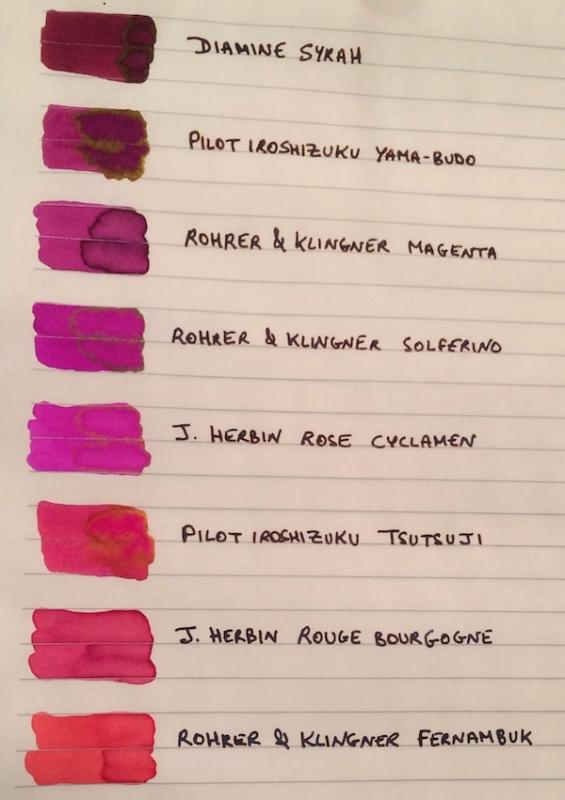 DIAMINE SYRAH
PILOT IROSHIZUKU YAMA-BUDO
ROHRER & KLINGNER MAGENTA
ROHRER & KLINGNER SOLFERINO
J. HERBIN ROSE CYCLAMEN
PILOT IROSHIZUKU TSUTSUJI
J. HERBIN ROUGE BOURGOGNE
ROHRER & KLINGNER FERNAMBUK